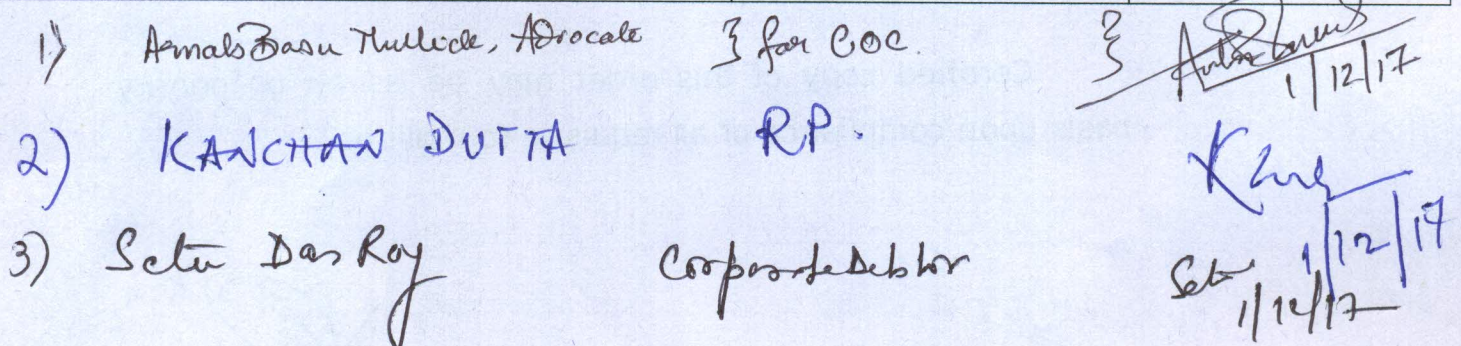 1) Basu Mullick, Advocate } for COC. } 1/12/17
2) KANCHAN DUTTA RP. 1/12/17
3) Setu Das Roy Corporate Debtor Setu 1/12/17